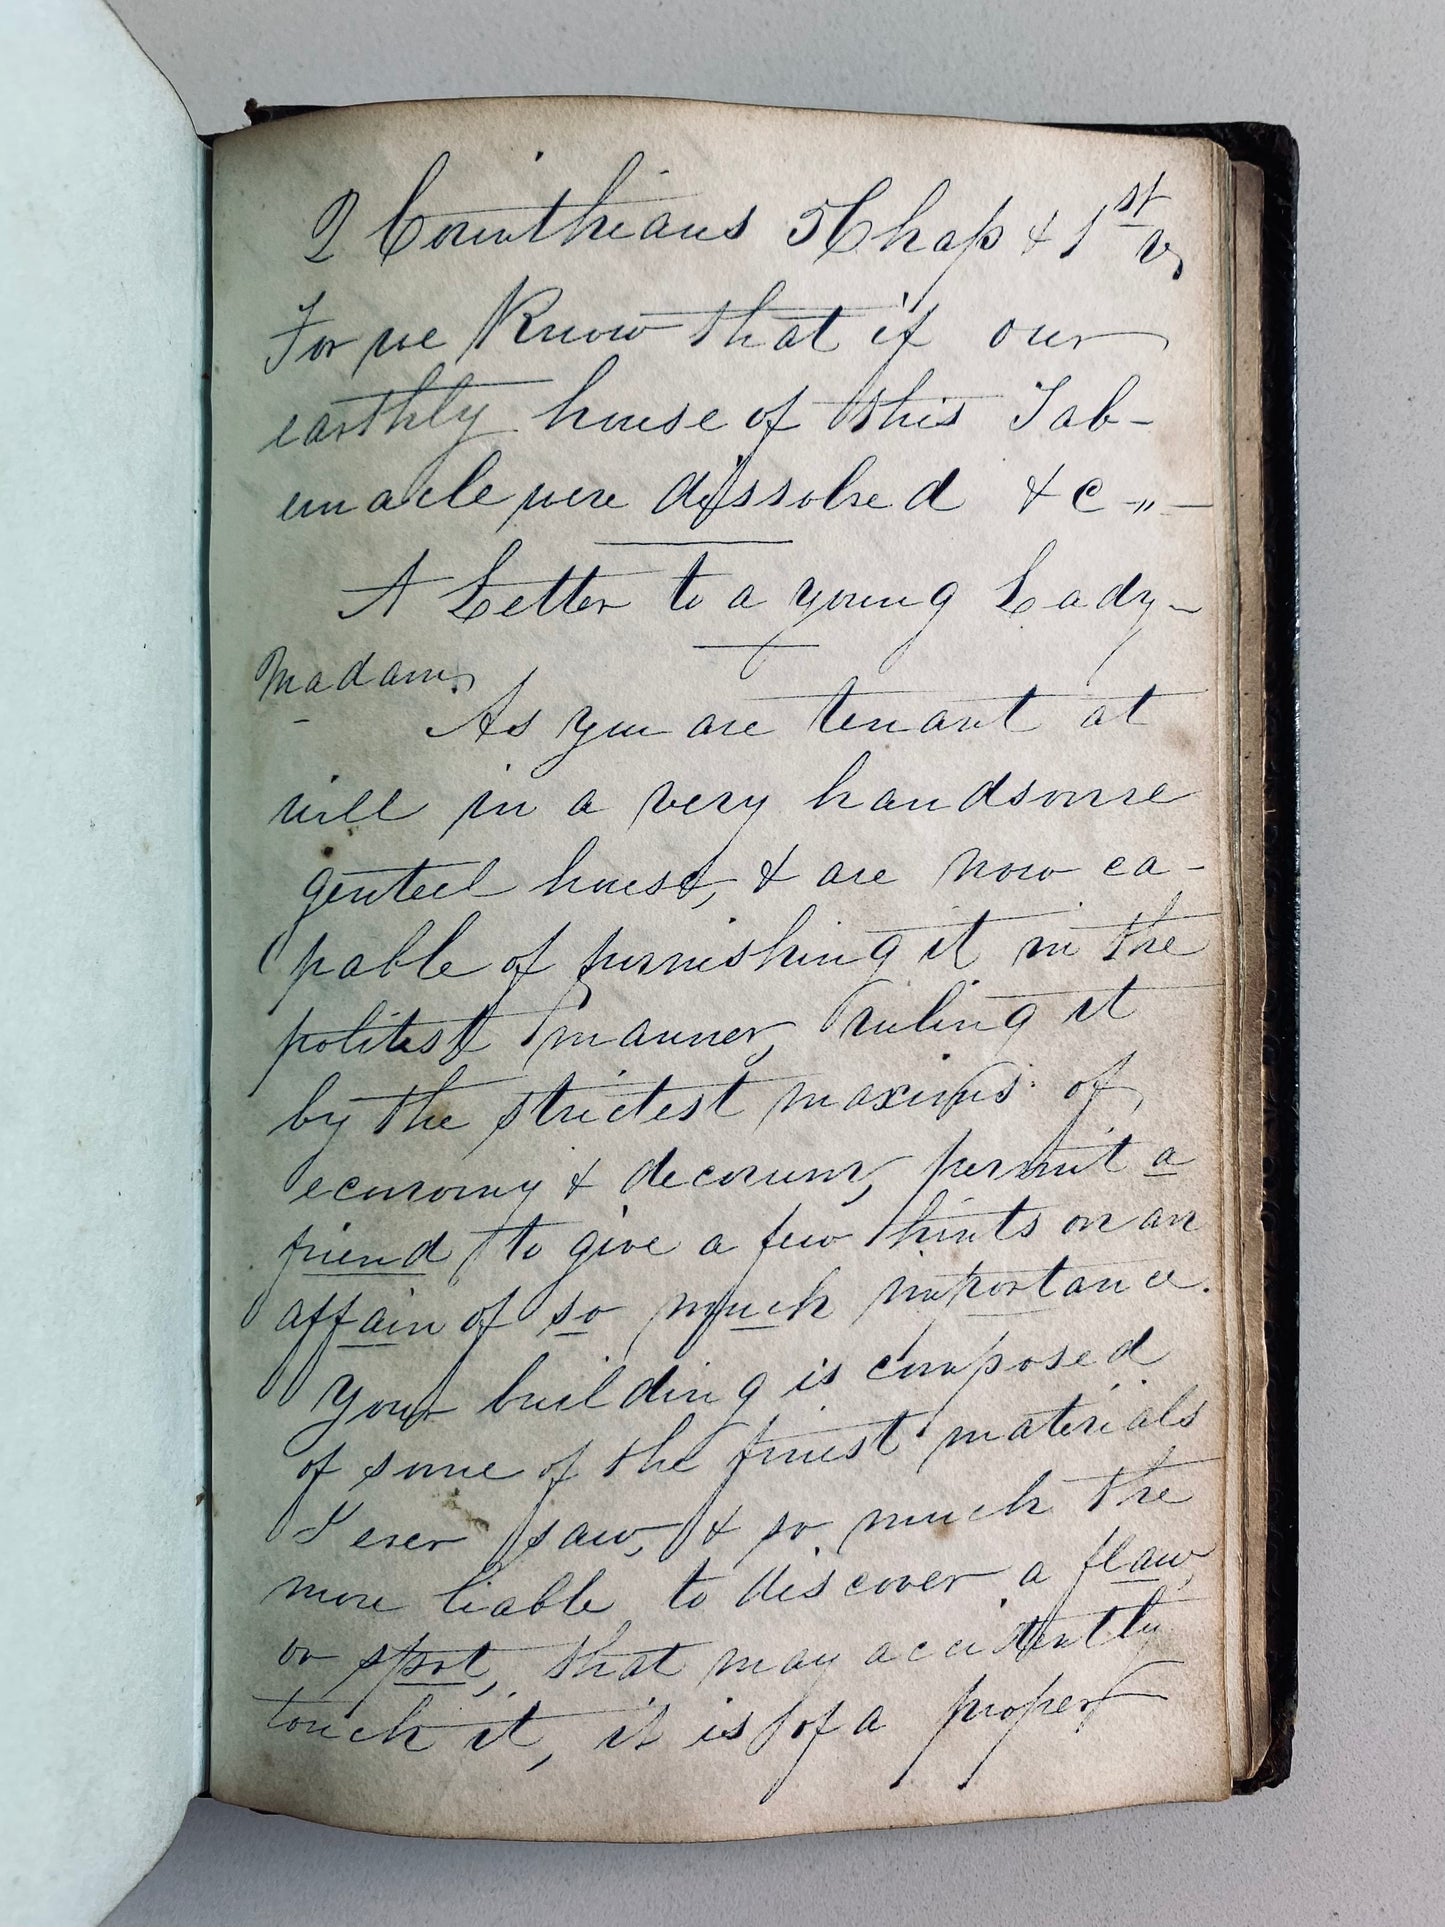 2 Corinthians 5 Chap & 1st v,
For we Know that if our
earthly house of this Tab-
ernacle were dissolved &c -"-
A Letter to a young Lady-
Madam,
As you are tenant at
will in a very handsome
genteel house, & are now ca-
pable of furnishing it in the
politest manner, ruling it
by the strictest maxims of
economy & decorum, permit a
friend to give a few hints on an
affair of so much importance.
Your building is composed
of some of the finest materials
I ever saw, & so much the
more liable to discover a flaw,
or spot, that may accidently
touch it, it is of a proper